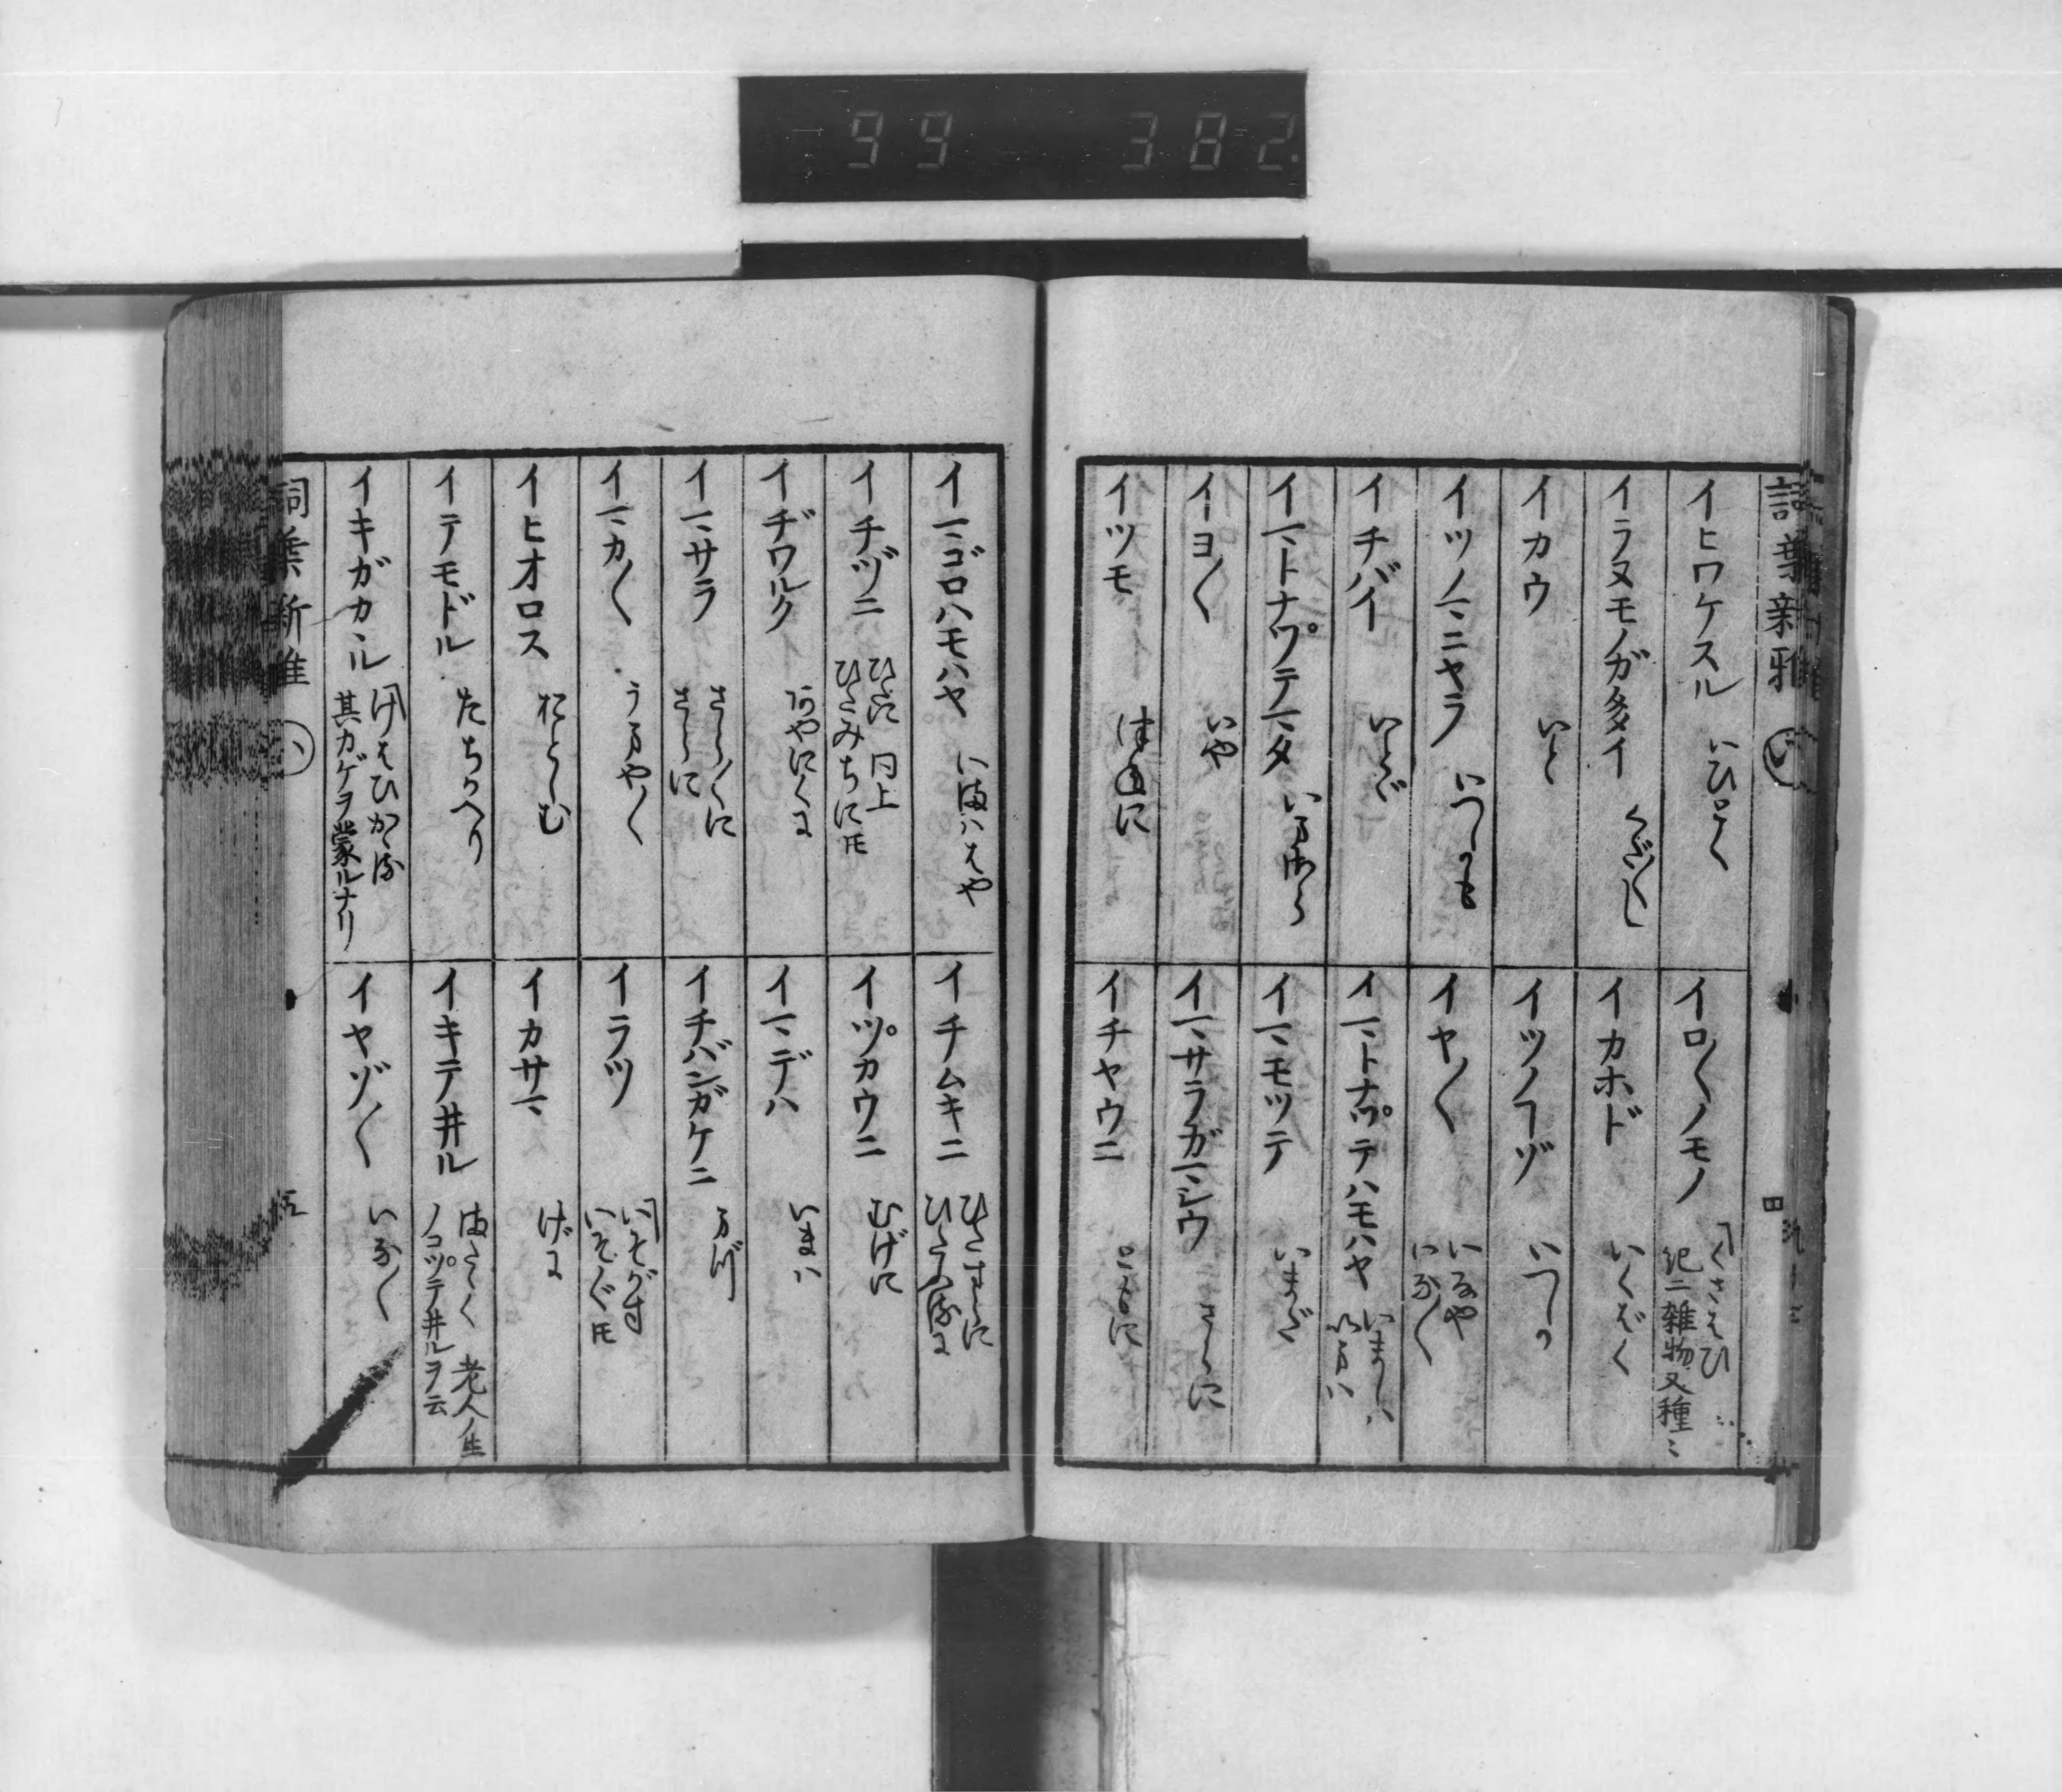 99 382
詞葉新雅
イヒワケスル いひとく
イラヌモノガ多イ くだ〳〵し
イカウ いと
イツノマニヤラ いつしかも
イチバイ いとゞ
イマトナツテマタ いまさら
イヨ〳〵 いや
イツモ つねに
イロ〳〵ノモノ くさはひ
紀ニ雑物又種ミ
イカホド いくばく
イツノマゾ いつしか
イヤ〳〵 いなや
いな〳〵
イマトナツテハモハヤ いましハ
いまハ
イマモツテ いまだ
イマサラガマシウ さらに
イチヤウニ ともに
四
イマゴロハモハヤ いまハはや
イチヅニ ひたに 同上
ひたみちにモ
イヂワルク あやにくに
イマサラ さら〳〵に
さらに
イマカ〳〵 うまや〳〵
イヒオロス おとしむ
イテモドル たちかへり
イキガカヽル けはひかゝる
其カゲヲ蒙ルナリ
イチムキニ ひたすらに
ひたふるに
イツカウニ むげに
イマデハ いまハ
イチバンガケニ まづ
イラツ いそがす
いそぐモ
イカサマ げに
イキテ井ル またく 老人ノ生
ノコツテ井ルヲ云
イヤゾ〳〵 いな〳〵
詞葉新雅